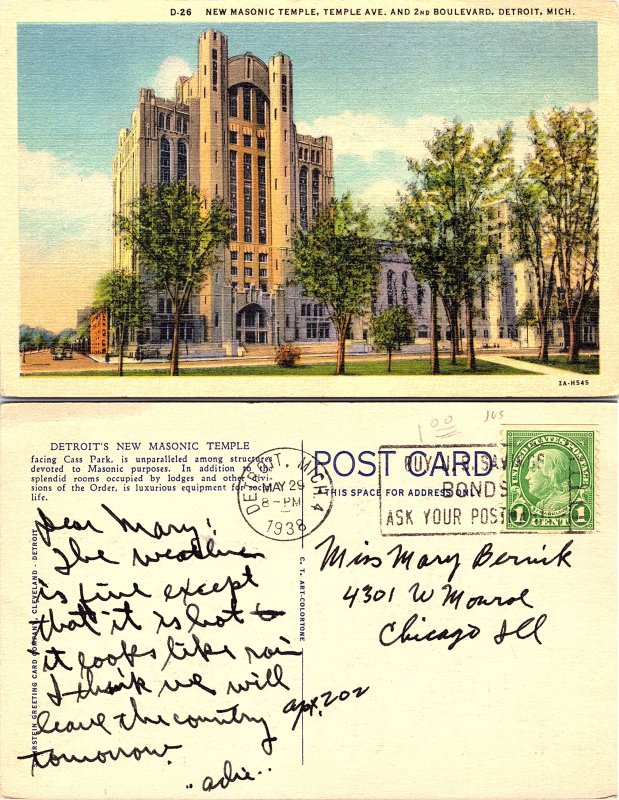 D-26 NEW MASONIC TEMPLE, TEMPLE AVE. AND 2ND BOULEVARD, DETROIT, MICH.
2A-H545
DETROIT'S NEW MASONIC TEMPLE
facing Cass Park, is unparalleled among structures
devoted to Masonic purposes. In addition to the
splendid rooms occupied by lodges and other divi-
sions of the Order, is luxurious equipment for social
life.
Dear Mary:
The weather
is fine except
that it is hot
it looks like rain
I think we will
leave the country
tomorrow.
GREETING CARD COMPANY, CLEVELAND - DETROIT
C. T. ART-COLORTONE
POST CARD
THIS SPACE FOR ADDRESS ONLY
DETROIT, MICH. 4
MAY 29
8-PM
1938
1.00
BUY U.S. SAVINGS
BONDS
ASK YOUR POST
UNITED STATES POSTAGE
1 CENT 1
Miss Mary
4301 W Monroe
Chicago Ill
apt. 202